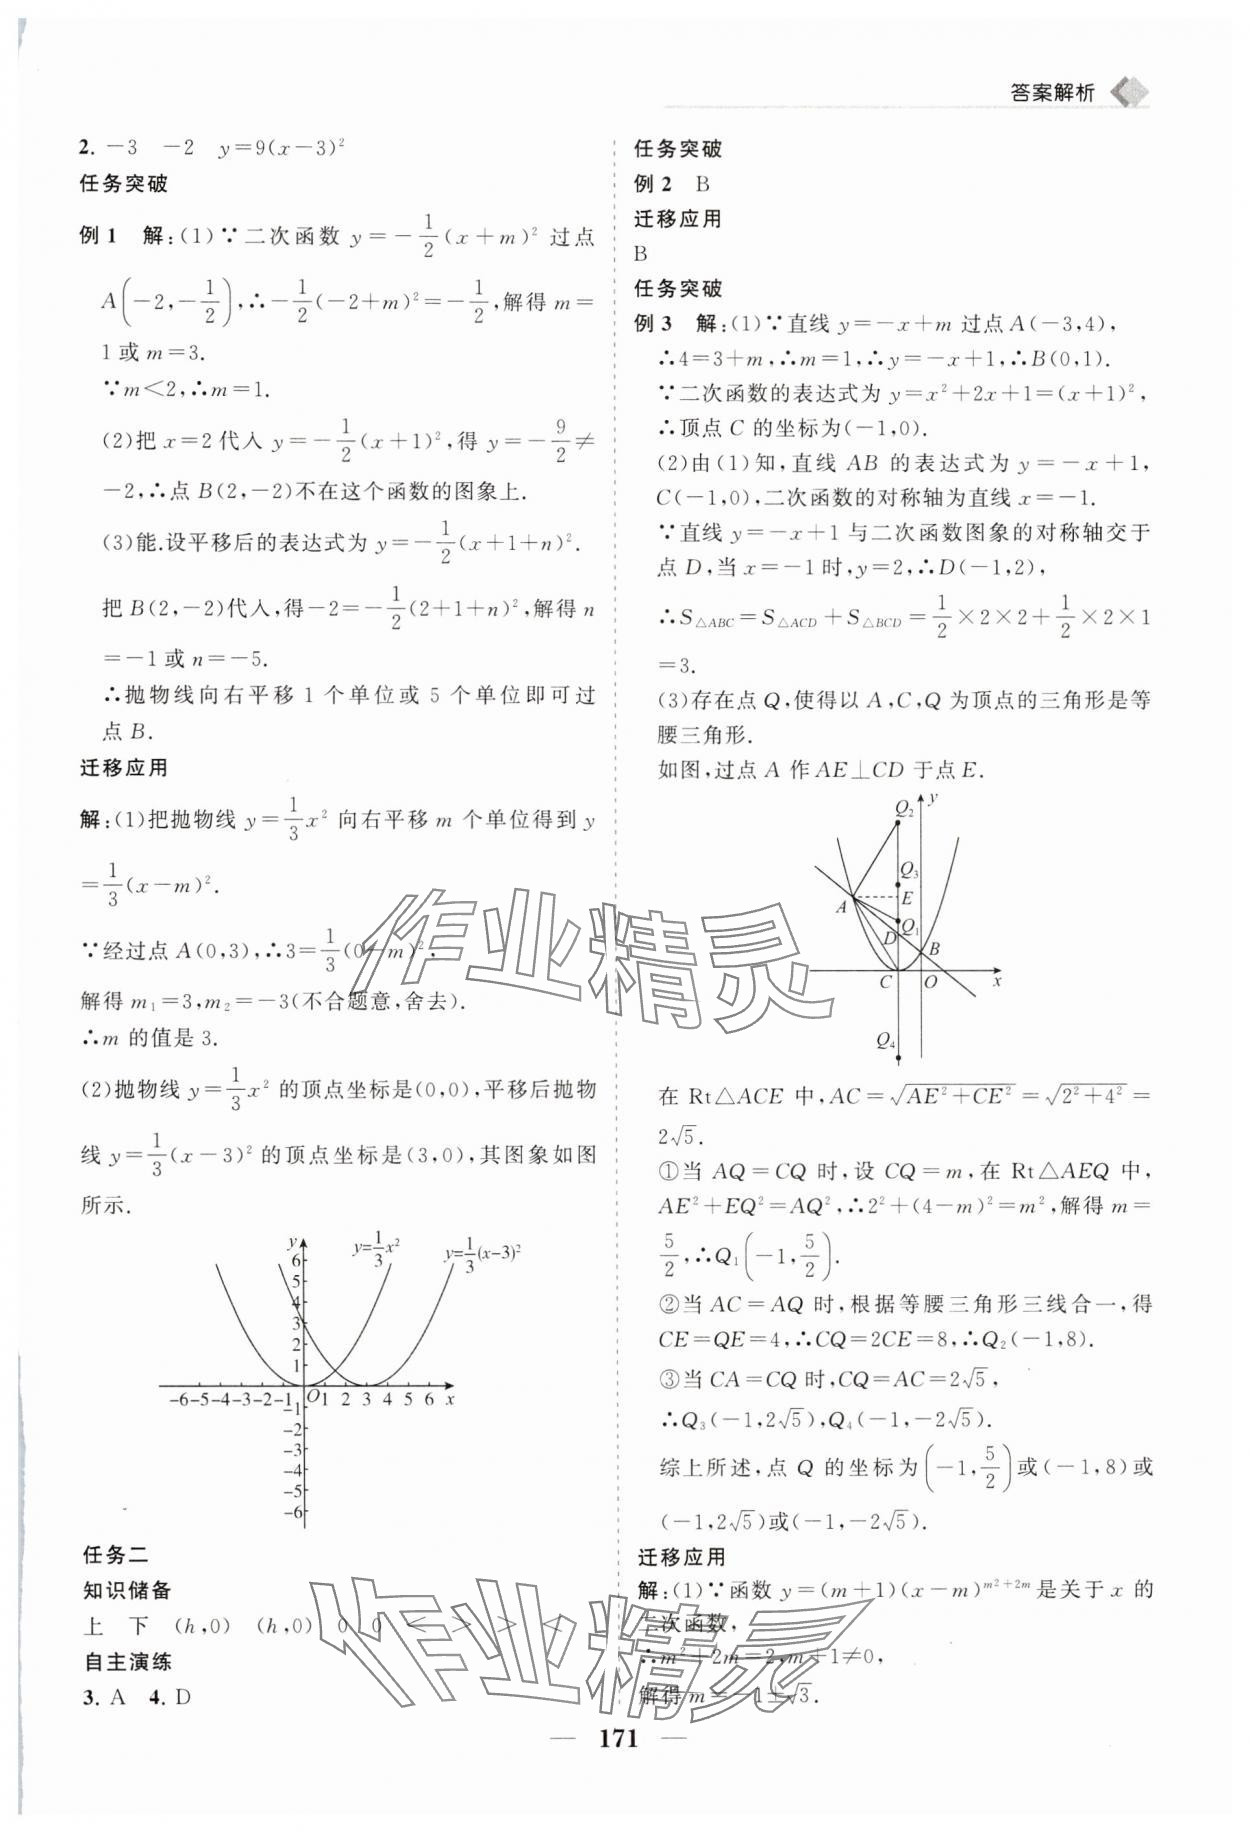 答案解析
2. －3　－2　y＝9(x－3)²
任务突破
例1　解:(1)∵二次函数 y＝－1/2(x＋m)² 过点
A(－2,－1/2),∴－1/2(－2＋m)²＝－1/2,解得 m＝
1或 m＝3.
∵m＜2,∴m＝1.
(2)把 x＝2代入 y＝－1/2(x＋1)²,得 y＝－9/2≠
－2,∴点 B(2,－2)不在这个函数的图象上.
(3)能.设平移后的表达式为 y＝－1/2(x＋1＋n)².
把 B(2,－2)代入,得－2＝－1/2(2＋1＋n)²,解得 n
＝－1或 n＝－5.
∴抛物线向右平移 1 个单位或 5 个单位即可过
点 B.
迁移应用
解:(1)把抛物线 y＝1/3x² 向右平移 m 个单位得到 y
＝1/3(x－m)².
∵经过点 A(0,3),∴3＝1/3(0－m)²,
解得 m₁＝3,m₂＝－3(不合题意,舍去).
∴m 的值是 3.
(2)抛物线 y＝1/3x² 的顶点坐标是(0,0),平移后抛物
线 y＝1/3(x－3)² 的顶点坐标是(3,0),其图象如图
所示.
y
y=1/3x²
y=1/3(x-3)²
6
5
4
3
2
1
-6-5-4-3-2-1 O 1 2 3 4 5 6 x
-1
-2
-3
-4
-5
-6
任务二
知识储备
上　下　(h,0)　(h,0)　0　0　＜　＞　＞　＜
自主演练
3. A　4. D
任务突破
例2　B
迁移应用
B
任务突破
例3　解:(1)∵直线 y＝－x＋m 过点 A(－3,4),
∴4＝3＋m,∴m＝1,∴y＝－x＋1,∴B(0,1).
∵二次函数的表达式为 y＝x²＋2x＋1＝(x＋1)²,
∴顶点 C 的坐标为(－1,0).
(2)由(1)知,直线 AB 的表达式为 y＝－x＋1,
C(－1,0),二次函数的对称轴为直线 x＝－1.
∵直线 y＝－x＋1 与二次函数图象的对称轴交于
点 D,当 x＝－1时,y＝2,∴D(－1,2),
∴S△ABC＝S△ACD＋S△BCD＝1/2×2×2＋1/2×2×1
＝3.
(3)存在点 Q,使得以 A,C,Q 为顶点的三角形是等
腰三角形.
如图,过点 A 作 AE⊥CD 于点 E.
Q₂ y
Q₃
A E
Q₁
D B
C O x
Q₄
在 Rt△ACE 中,AC＝√(AE²＋CE²)＝√(2²＋4²)＝
2√5.
①当 AQ＝CQ 时,设 CQ＝m,在 Rt△AEQ 中,
AE²＋EQ²＝AQ²,∴2²＋(4－m)²＝m²,解得 m＝
5/2,∴Q₁(－1,5/2).
②当 AC＝AQ 时,根据等腰三角形三线合一,得
CE＝QE＝4,∴CQ＝2CE＝8,∴Q₂(－1,8).
③当 CA＝CQ 时,CQ＝AC＝2√5,
∴Q₃(－1,2√5),Q₄(－1,－2√5).
综上所述,点 Q 的坐标为(－1,5/2)或(－1,8)或
(－1,2√5)或(－1,－2√5).
迁移应用
解:(1)∵函数 y＝(m＋1)(x－m)^(m²＋2m)是关于 x 的
二次函数,
∴m²＋2m＝2,m＋1≠0,
解得 m＝－1±√3.
作业精灵
作业精灵
— 171 —